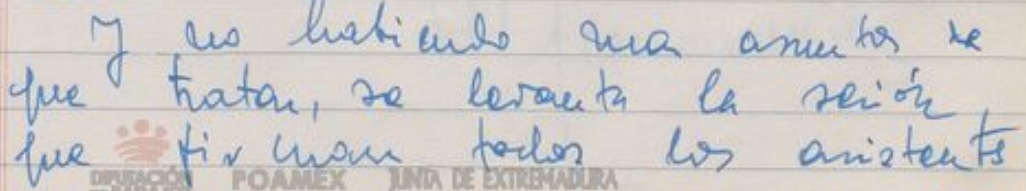 Y no habiendo mas asuntos de
que tratar, se levanta la sesión,
que firman todos los asistents
DIPUTACIÓN POAMEX JUNTA DE EXTREMADURA